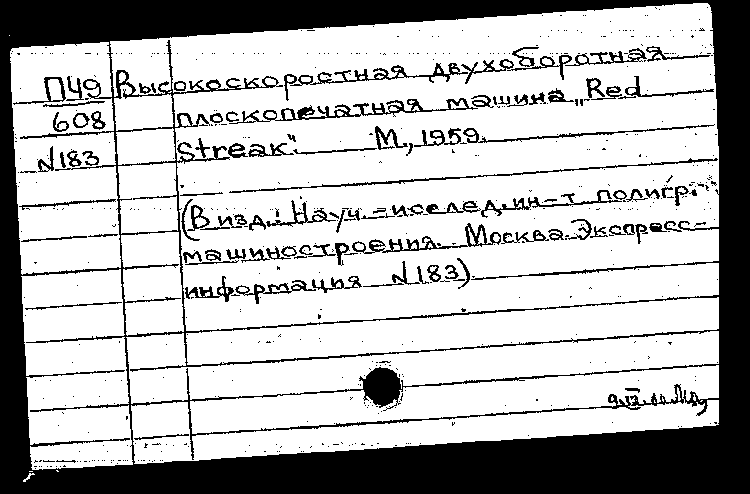 П49 Высокоскоростная двухоборотная
608 плоскопечатная машина „Red
N183 Streak". М., 1959.
(В изд.: Науч.-исслед. ин-т полигр.
машиностроения. Москва. Экспресс-
информация N183)